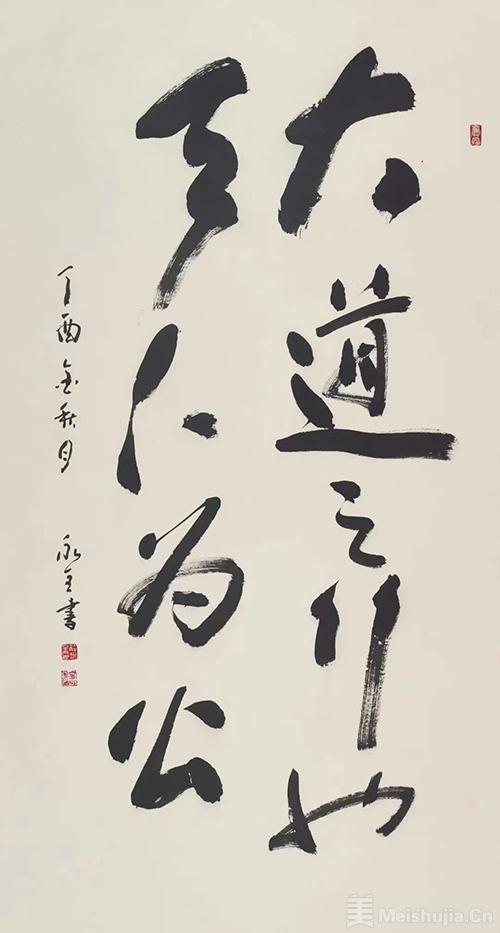 大道之行也
天下为公
丁酉金秋月 永 書
美 Meishujia.Cn